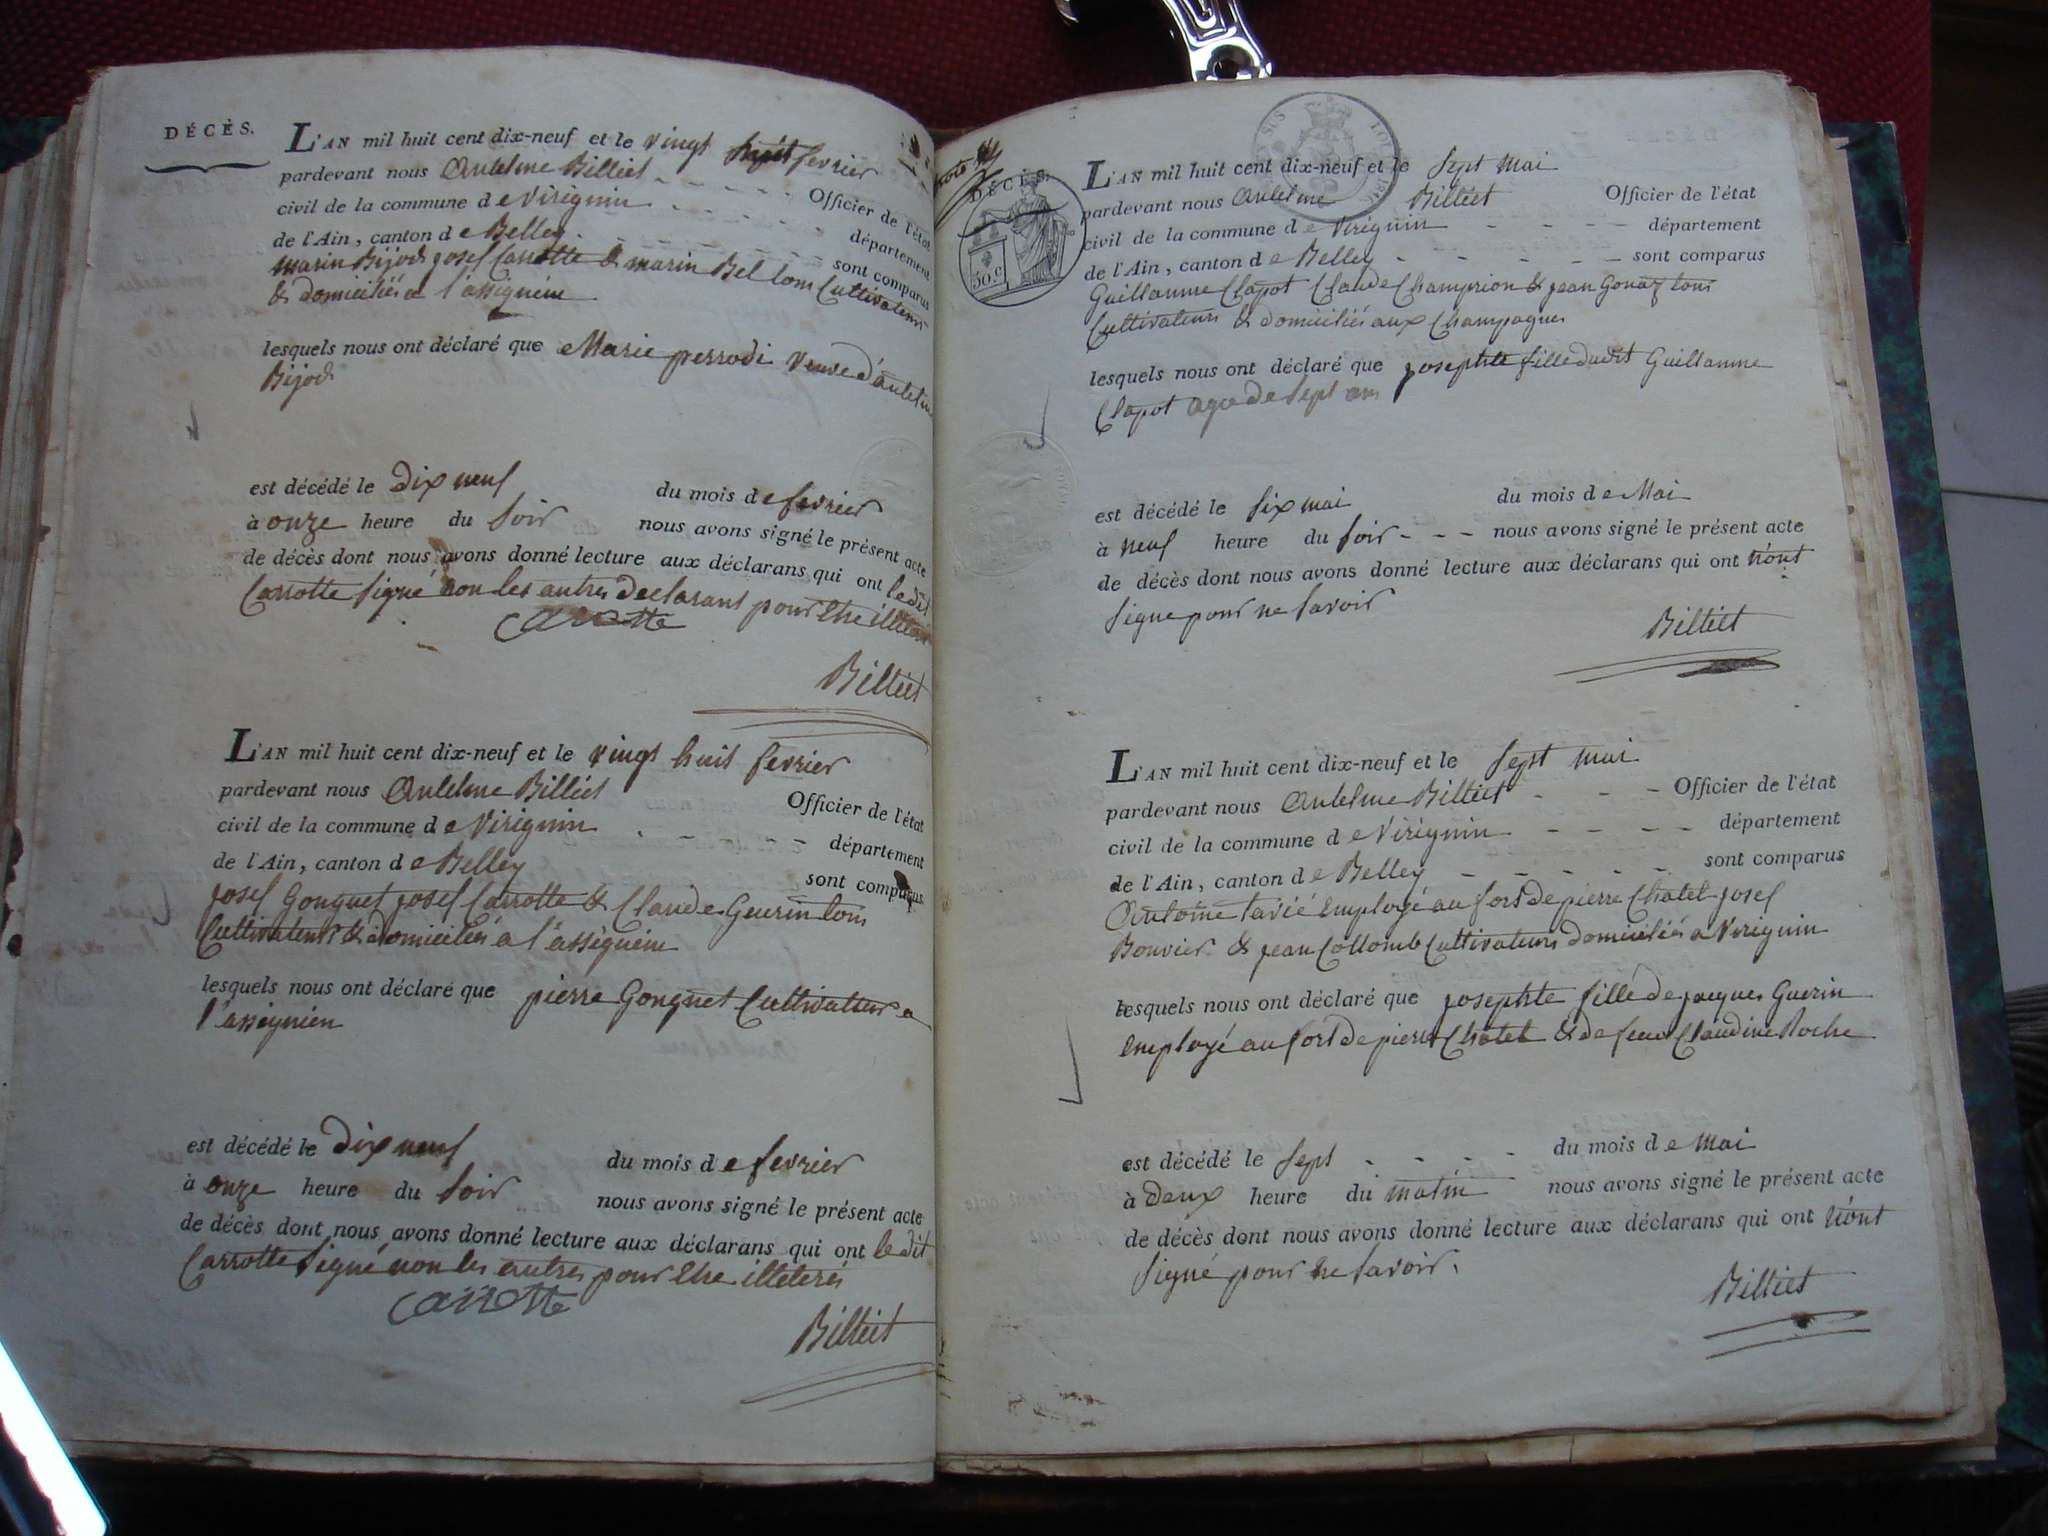 DÉCÈS.
L'AN mil huit cent dix-neuf et le vingt sept fevrier
pardevant nous Antelme Billiet Officier de l'état
civil de la commune de Virignin département
de l'Ain, canton de Belley sont comparus
marin Bijod josef Carrotte & marin Bel tous Cultivateurs
& domiciliés a l'assignieu
lesquels nous ont déclaré que Marie perrodi veuve d'antelme
Bijod
est décédé le dix neuf du mois de fevrier
à onze heure du soir nous avons signé le présent acte
de décès dont nous avons donné lecture aux déclarans qui ont ledit
Carrotte signé non les autres declarant pour etre
Carrotte
Billiet
L'AN mil huit cent dix-neuf et le vingt huit fevrier
pardevant nous Antelme Billiet Officier de l'état
civil de la commune de Virignin département
de l'Ain, canton de Belley sont comparus
josef Gonguet josef Carrotte & Claude Guerin tous
Cultivateurs & domiciliés a l'assignieu
lesquels nous ont déclaré que pierre Gonguet Cultivateur a
l'assignieu
est décédé le dix neuf du mois de fevrier
à onze heure du soir nous avons signé le présent acte
de décès dont nous avons donné lecture aux déclarans qui ont ledit
Carrotte signé non les autres pour etre illeterés
Carrotte
Billiet
DÉCÈS.
50 c.
L'AN mil huit cent dix-neuf et le sept mai
pardevant nous Antelme Billiet Officier de l'état
civil de la commune de Virignin département
de l'Ain, canton de Belley sont comparus
Guillaume Clapot Claude Champrion & jean Gonaz tous
Cultivateurs & domiciliés aux Champagnes
lesquels nous ont déclaré que josephte fille dudit Guillaume
Clapot agee de sept ans
est décédé le six mai du mois de Mai
à neuf heure du soir nous avons signé le présent acte
de décès dont nous avons donné lecture aux déclarans qui ont n'ont
signe pour ne savoir
Billiet
L'AN mil huit cent dix-neuf et le sept mai
pardevant nous Antelme Billiet Officier de l'état
civil de la commune de Virignin département
de l'Ain, canton de Belley sont comparus
Antoine tavié Employé au fort de pierre Chatel josef
Bouvier & jean Collomb Cultivateurs domiciliés a Virignin
lesquels nous ont déclaré que josephte fille de jacques Guerin
employé au fort de pierre Chatel & de feue Claudine Roche
est décédé le sept du mois de mai
à deux heure du matin nous avons signé le présent acte
de décès dont nous avons donné lecture aux déclarans qui ont n'ont
signé pour ne savoir.
Billiet